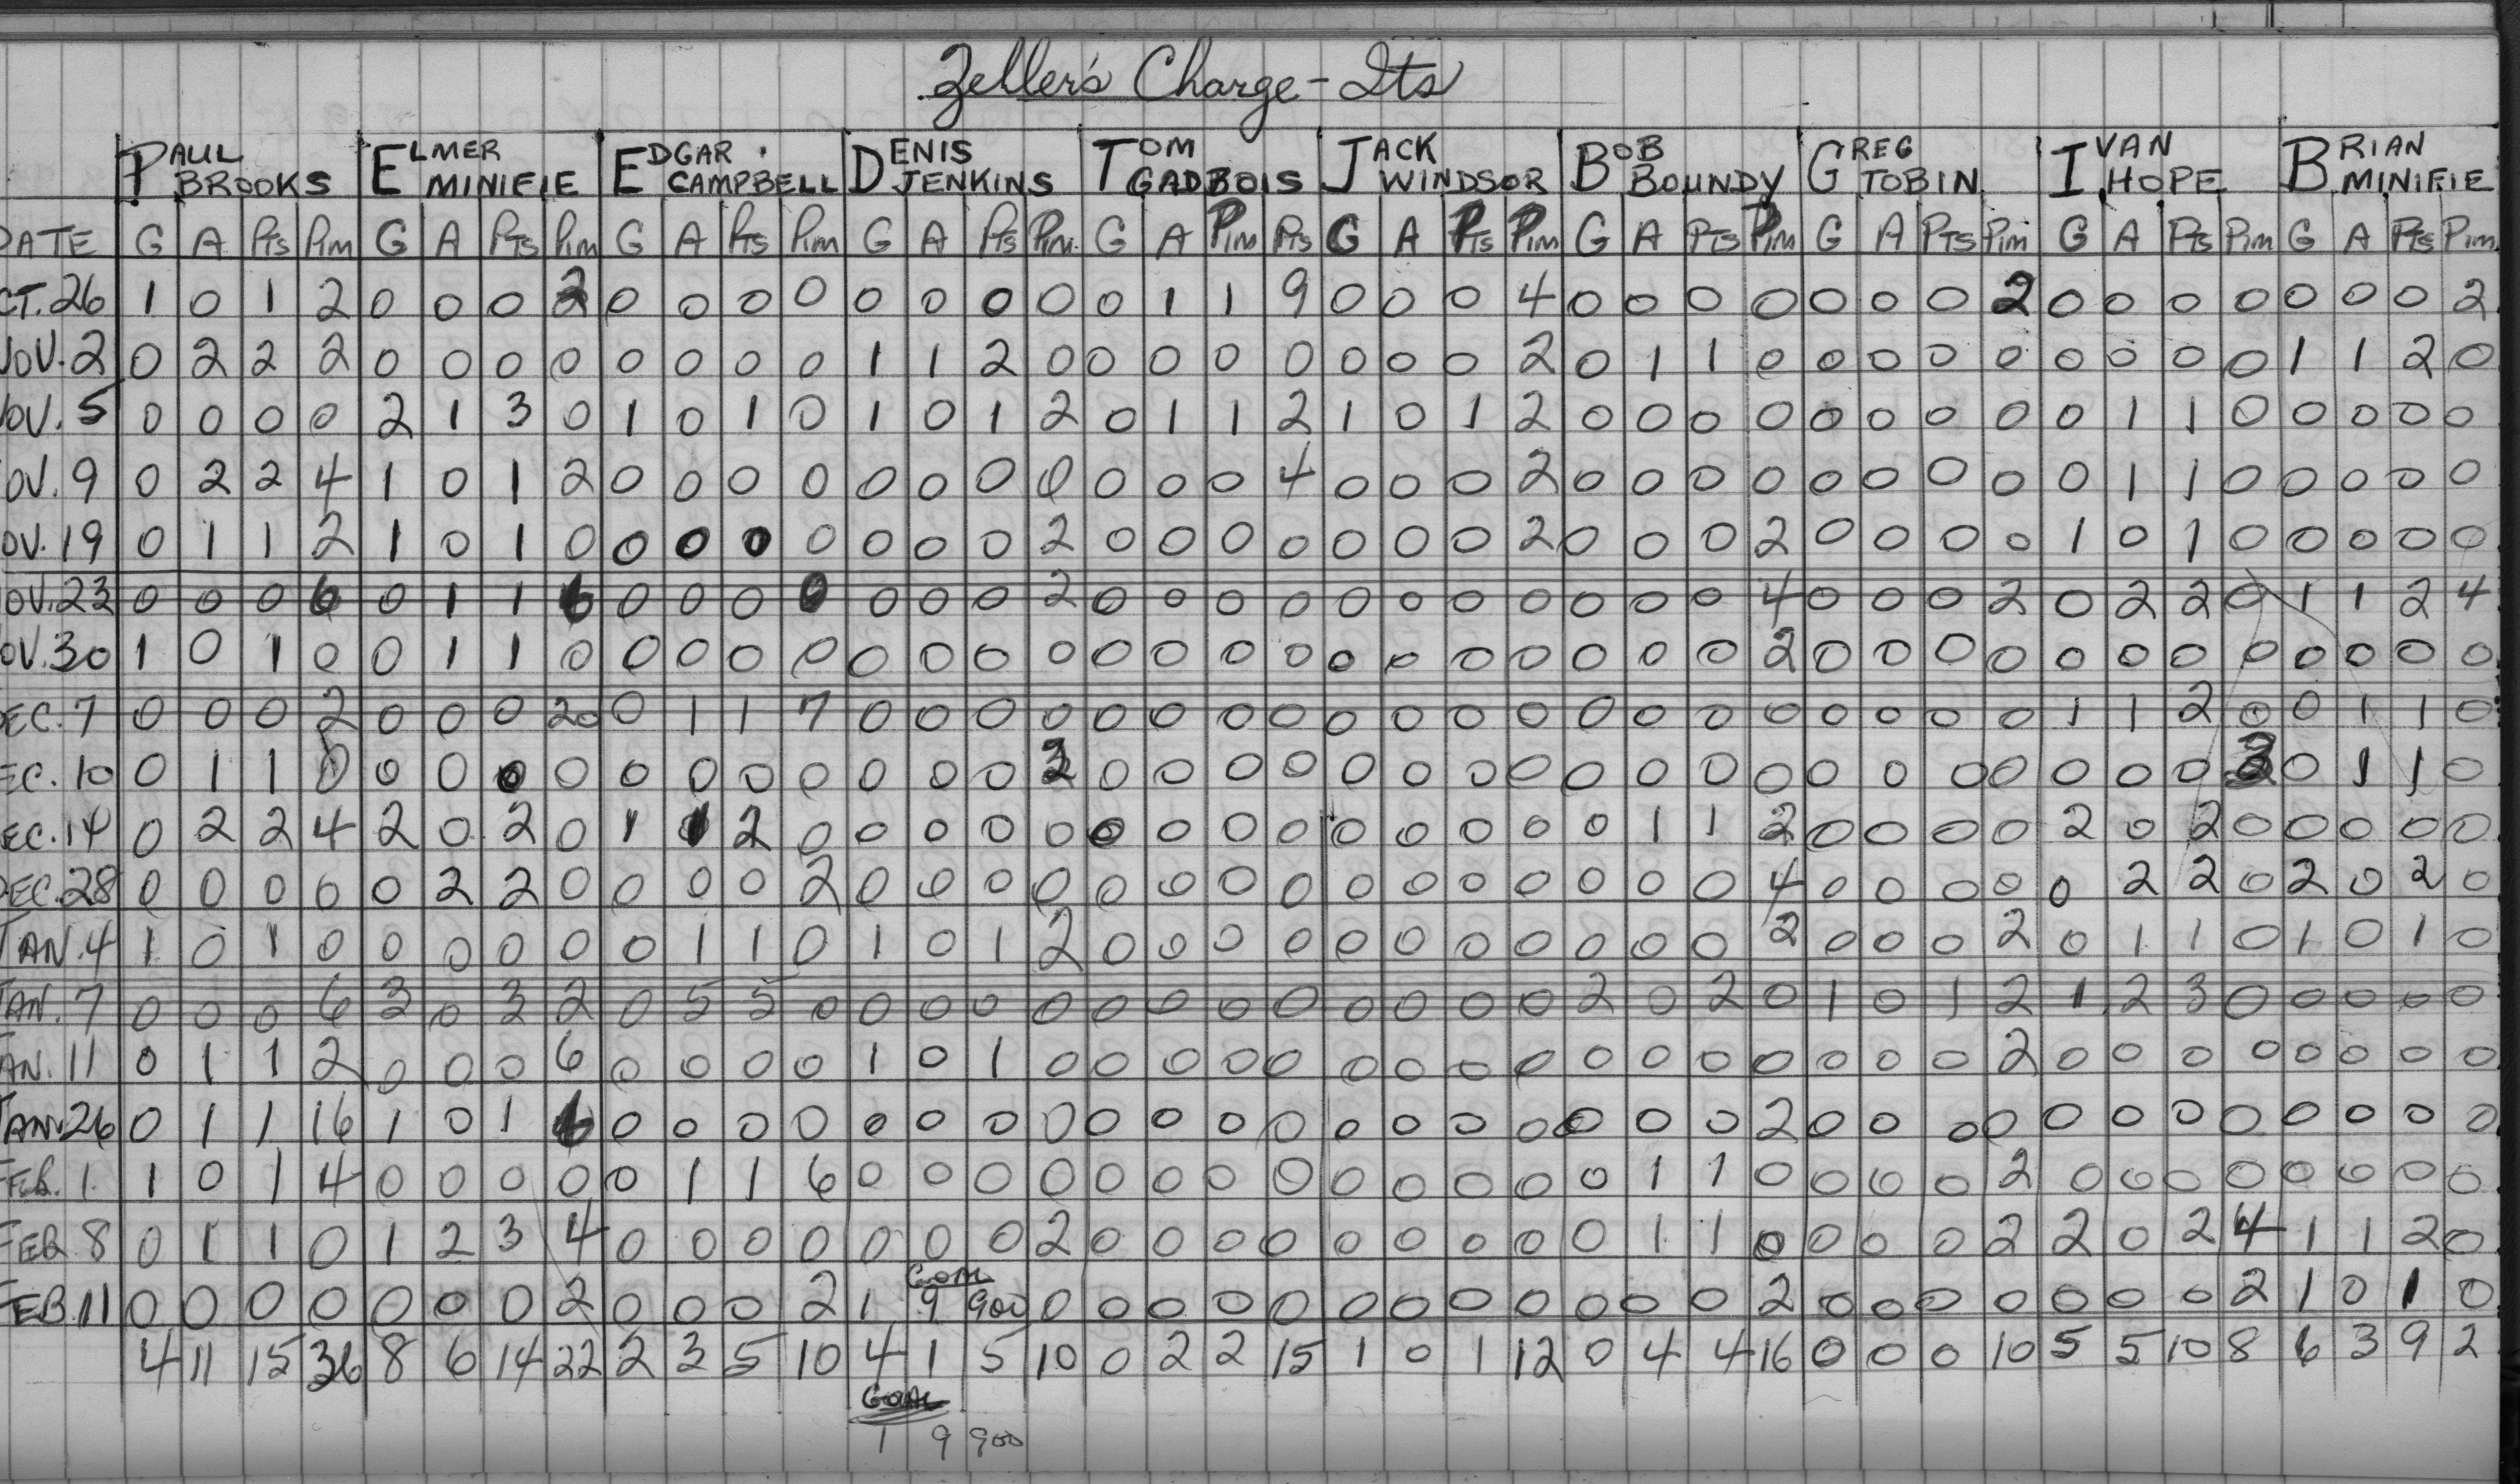 Zeller's Charge-Its
PAUL BROOKS ELMER MINIFIE EDGAR CAMPBELL DENIS JENKINS TOM GADBOIS JACK WINDSOR BOB BOUNDY GREG TOBIN IVAN HOPE BRIAN MINIFIE
DATE G A Pts Pim G A Pts Pim G A Pts Pim G A Pts Pim G A Pim Pts G A Pts Pim G A Pts Pim G A Pts Pim G A Pts Pim G A Pts Pim
CT.26 1 0 1 2 0 0 0 2 0 0 0 0 0 0 0 0 0 1 1 9 0 0 0 4 0 0 0 0 0 0 0 2 0 0 0 0 0 0 0 2
NOV.2 0 2 2 2 0 0 0 0 0 0 0 0 1 1 2 0 0 0 0 0 0 0 0 2 0 1 1 0 0 0 0 0 0 0 0 0 1 1 2 0
OV.5 0 0 0 0 2 1 3 0 1 0 1 0 1 0 1 2 0 1 1 2 1 0 1 2 0 0 0 0 0 0 0 0 0 1 1 0 0 0 0 0
OV.9 0 2 2 4 1 0 1 2 0 0 0 0 0 0 0 0 0 0 0 4 0 0 0 2 0 0 0 0 0 0 0 0 0 1 1 0 0 0 0 0
OV.19 0 1 1 2 1 0 1 0 0 0 0 0 0 0 0 2 0 0 0 0 0 0 0 2 0 0 0 2 0 0 0 0 1 0 1 0 0 0 0 0
OV.23 0 0 0 6 0 1 1 6 0 0 0 0 0 0 0 2 0 0 0 0 0 0 0 0 0 0 0 4 0 0 0 2 0 2 2 0 1 1 2 4
OV.30 1 0 1 0 0 1 1 0 0 0 0 0 0 0 0 0 0 0 0 0 0 0 0 0 0 0 0 2 0 0 0 0 0 0 0 0 0 0 0 0
EC.7 0 0 0 2 0 0 0 20 0 1 1 7 0 0 0 0 0 0 0 0 0 0 0 0 0 0 0 0 0 0 0 0 1 1 2 0 0 1 1 0
EC.10 0 1 1 0 0 0 0 0 0 0 0 0 0 0 0 2 0 0 0 0 0 0 0 0 0 0 0 0 0 0 0 0 0 0 0 2 0 1 1 0
EC.14 0 2 2 4 2 0 2 0 1 1 2 0 0 0 0 0 0 0 0 0 0 0 0 0 0 1 1 2 0 0 0 0 2 0 2 0 0 0 0 0
DEC.28 0 0 0 0 0 2 2 0 0 0 0 2 0 0 0 0 0 0 0 0 0 0 0 0 0 0 0 4 0 0 0 0 0 2 2 0 2 0 2 0
JAN.4 1 0 1 0 0 0 0 0 0 1 1 0 1 0 1 2 0 0 0 0 0 0 0 0 0 0 0 2 0 0 0 2 0 1 1 0 1 0 1 0
JAN.7 0 0 0 6 3 0 3 2 0 5 5 0 0 0 0 0 0 0 0 0 0 0 0 0 2 0 2 0 1 0 1 2 1 2 3 0 0 0 0 0
AN.11 0 1 1 2 0 0 0 6 0 0 0 0 1 0 1 0 0 0 0 0 0 0 0 0 0 0 0 0 0 0 0 2 0 0 0 0 0 0 0 0
JAN.26 0 1 1 16 1 0 1 6 0 0 0 0 0 0 0 0 0 0 0 0 0 0 0 0 0 0 0 2 0 0 0 0 0 0 0 0 0 0 0 0
FEB.1. 1 0 1 4 0 0 0 0 0 1 1 6 0 0 0 0 0 0 0 0 0 0 0 0 0 1 1 0 0 0 0 2 0 0 0 0 0 0 0 0
FEB.8 0 1 1 0 1 2 3 4 0 0 0 0 0 0 0 2 0 0 0 0 0 0 0 0 0 1 1 0 0 0 0 2 2 0 2 4 1 1 2 0
GOAL
FEB.11 0 0 0 0 0 0 0 2 0 0 0 2 1 9 900 0 0 0 0 0 0 0 0 0 0 0 0 2 0 0 0 0 0 0 0 2 1 0 1 0
4 11 15 36 8 6 14 22 2 3 5 10 4 1 5 10 0 2 2 15 1 0 1 12 0 4 4 16 0 0 0 10 5 5 10 8 6 3 9 2
GOAL
1 9 900